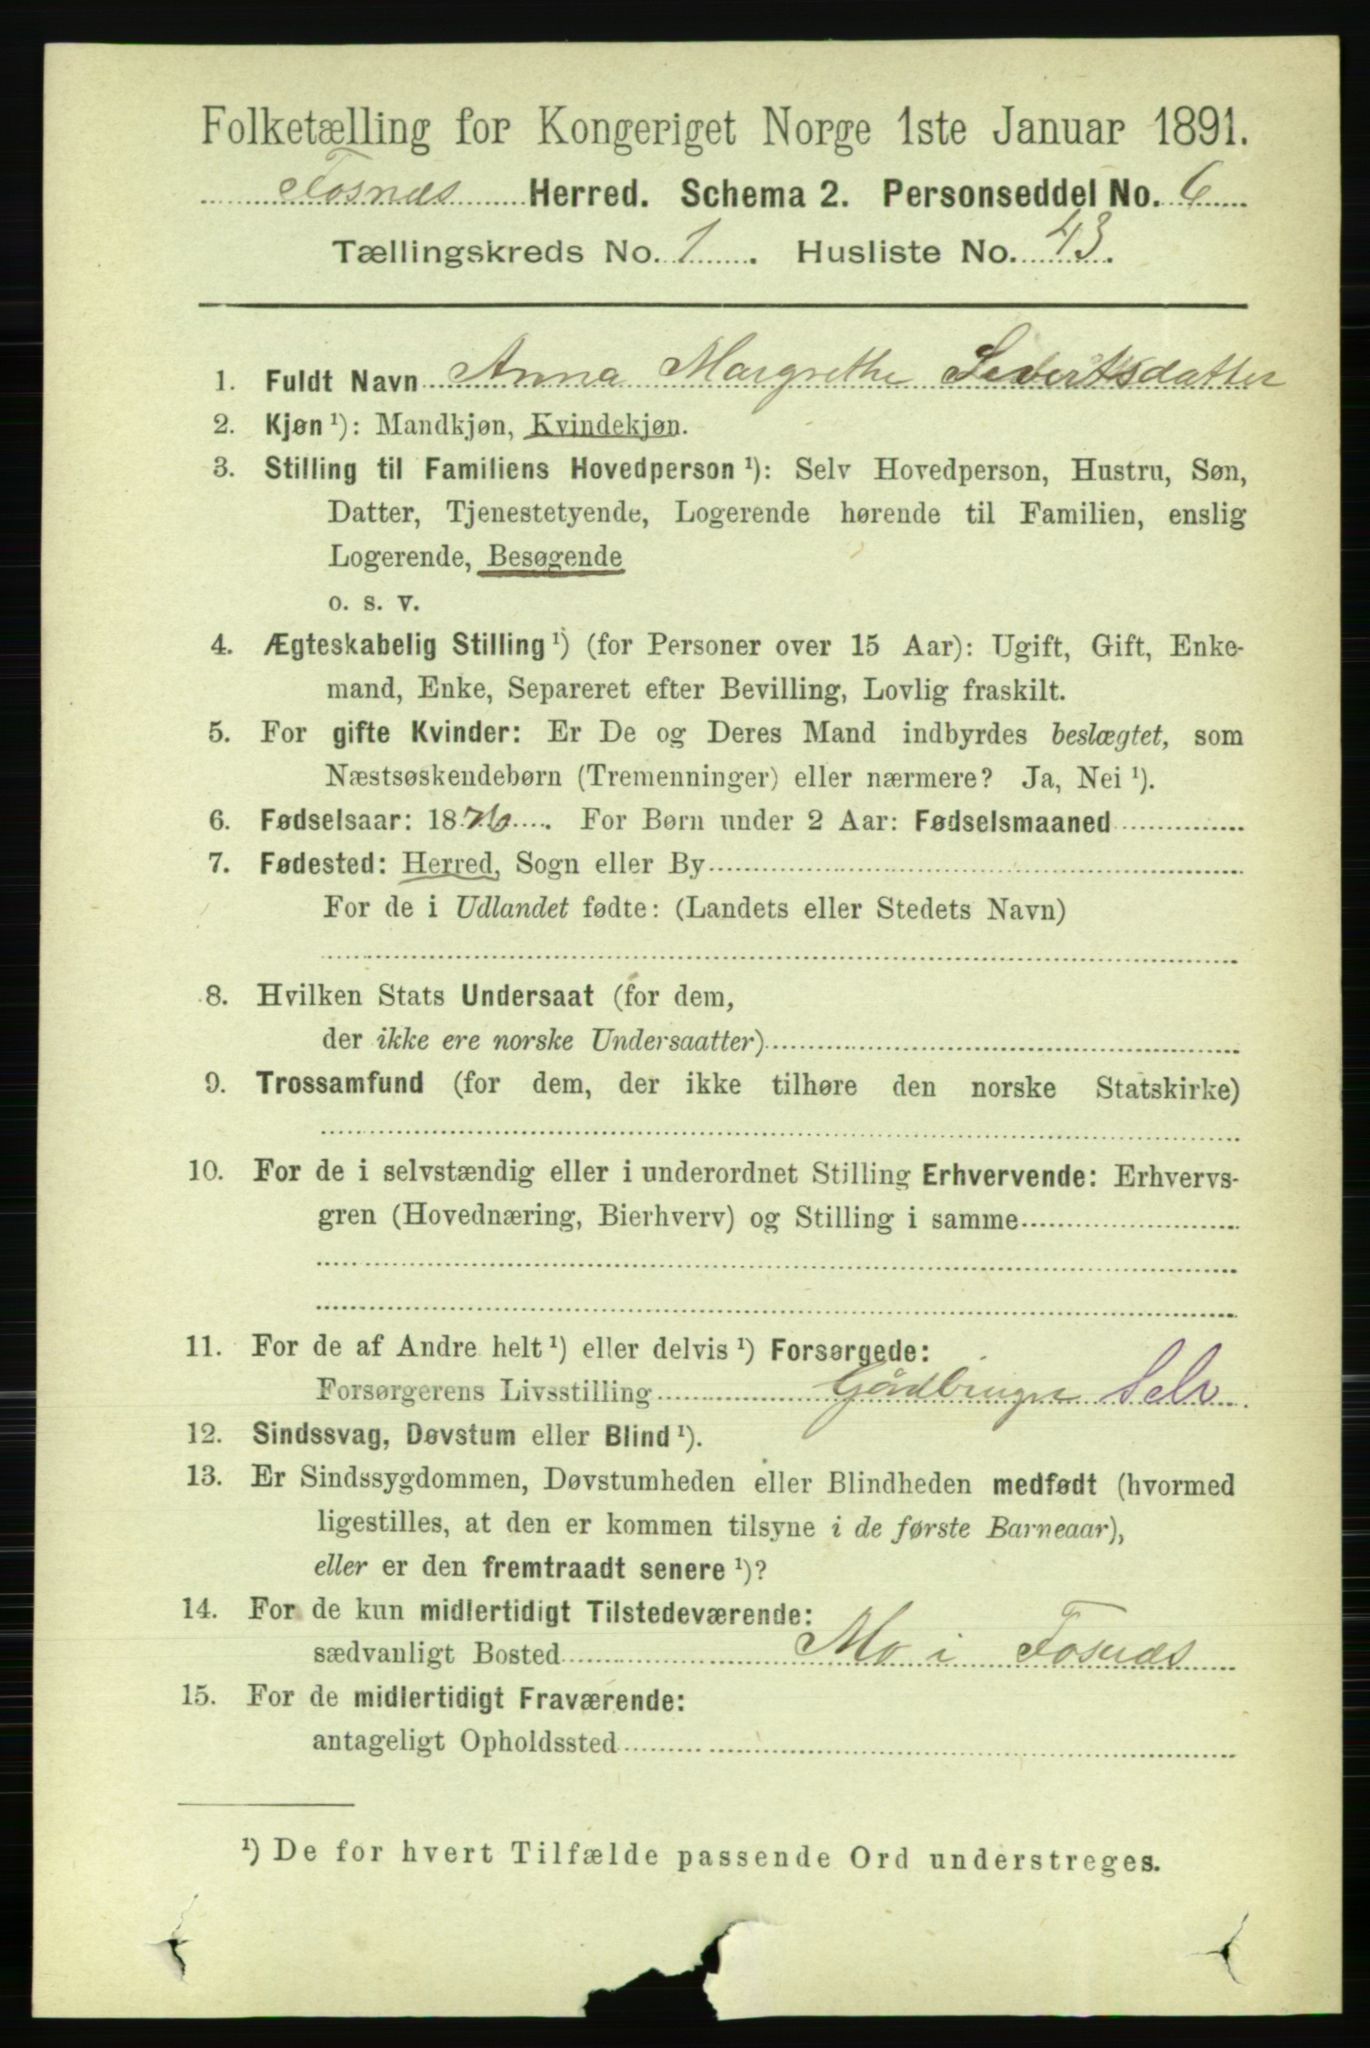 Folketælling for Kongeriget Norge 1ste Januar 1891.
Fosnæs Herred. Schema 2. Personseddel No. 6
Tællingskreds No. 1. Husliste No. 43.
1. Fuldt Navn Anna Margrethe Severtsdatter
2. Kjøn ¹): Mandkjøn, Kvindekjøn.
3. Stilling til Familiens Hovedperson ¹): Selv Hovedperson, Hustru, Søn,
Datter, Tjenestetyende, Logerende hørende til Familien, enslig
Logerende, Besøgende
o. s. v.
4. Ægteskabelig Stilling ¹) (for Personer over 15 Aar): Ugift, Gift, Enke-
mand, Enke, Separeret efter Bevilling, Lovlig fraskilt.
5. For gifte Kvinder: Er De og Deres Mand indbyrdes beslægtet, som
Næstsøskendebørn (Tremenninger) eller nærmere? Ja, Nei ¹).
6. Fødselsaar: 1876. For Børn under 2 Aar: Fødselsmaaned
7. Fødested: Herred, Sogn eller By
For de i Udlandet fødte: (Landets eller Stedets Navn)
8. Hvilken Stats Undersaat (for dem,
der ikke ere norske Undersaatter)
9. Trossamfund (for dem, der ikke tilhøre den norske Statskirke)
10. For de i selvstændig eller i underordnet Stilling Erhvervende: Erhvervs-
gren (Hovednæring, Bierhverv) og Stilling i samme
11. For de af Andre helt ¹) eller delvis ¹) Forsørgede:
Forsørgerens Livsstilling Gårdbruger Selv.
12. Sindssvag, Døvstum eller Blind ¹).
13. Er Sindssygdommen, Døvstumheden eller Blindheden medfødt (hvormed
ligestilles, at den er kommen tilsyne i de første Barneaar),
eller er den fremtraadt senere ¹)?
14. For de kun midlertidigt Tilstedeværende:
sædvanligt Bosted Mo i Fosnæs
15. For de midlertidigt Fraværende:
antageligt Opholdssted
¹) De for hvert Tilfælde passende Ord understreges.